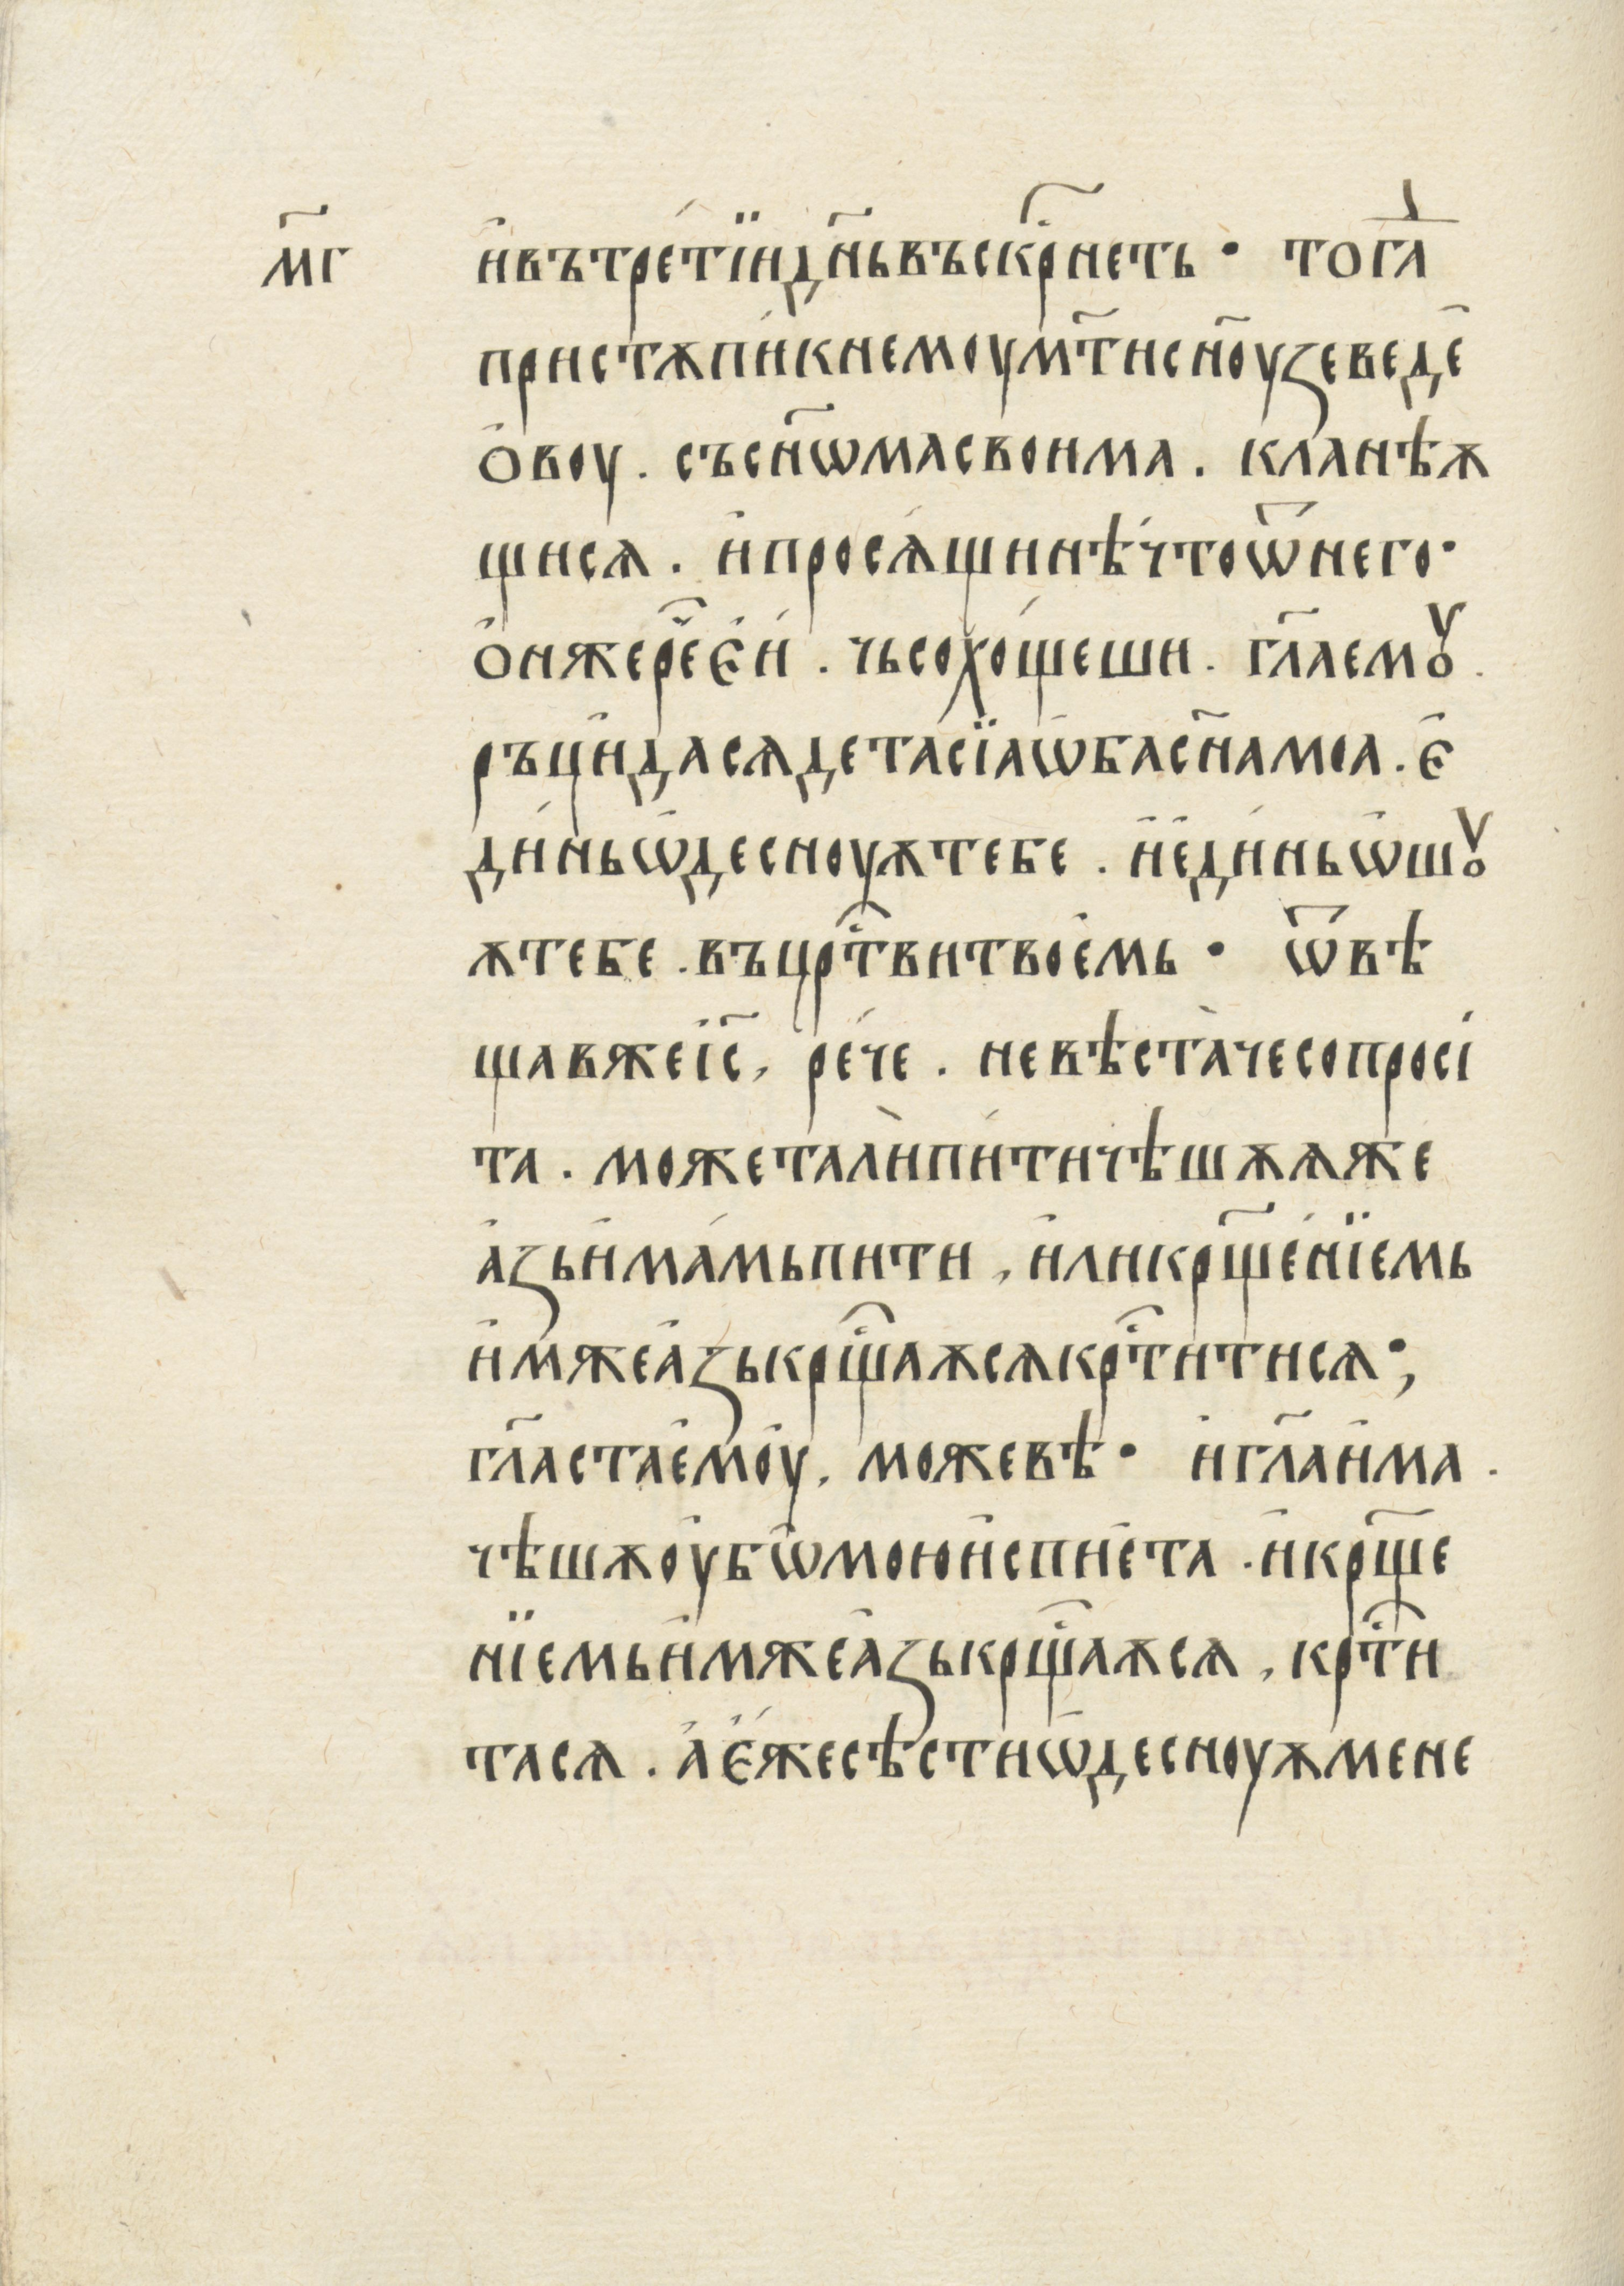 м҃г и҆вътре́тїидн҃ьвъскрⷭ҇неть · тогⷣа
пристѫпи́кнемоум҃тисн҃оуꙁеведе҆
о҆воу . съсн҃ѡмасвоима . кланѣѫ
щисѧ . и҆просѧ́щинѣ́чтоѿнего·
о҆нжереⷱ҇є҆и́ . чьсохо́щеши . гл҃аемꙋ .
ръци҆дасѧдетасїаѡ҆басн҃амоа . є҆
ди́ньѡ҆десноуѫтебе . и҆е҆ди́ньѡ҆шꙋ
ѫтебе . въцрⷭ҇твитвое҆мь · ѿвѣ
щавжеі҆с҃, ре́че . невѣста̀чесопросі
та . можетали̇̀пи́тичѣшѫѧже
а҆ꙁьи҆ма́мьпити , и҆ликрⷭ҇ще́нїемь
и҆мжеа҆ꙁькрⷭ҇щаѫсѧкрⷭ҇титисѧ·,
гл҃астае҆мо҆у . можевѣ · и҆гл҃аи҆ма .
чѣшѫо҆убѡ҆моюи҆спие҆та . и҆крⷭ҇ще
нїемьи҆мжеа҆ꙁькрⷭ҇щаѫсѧ , крⷭ҇ти
тасѧ . а҆є҆́жесѣстиѡ҆десноуѫмене